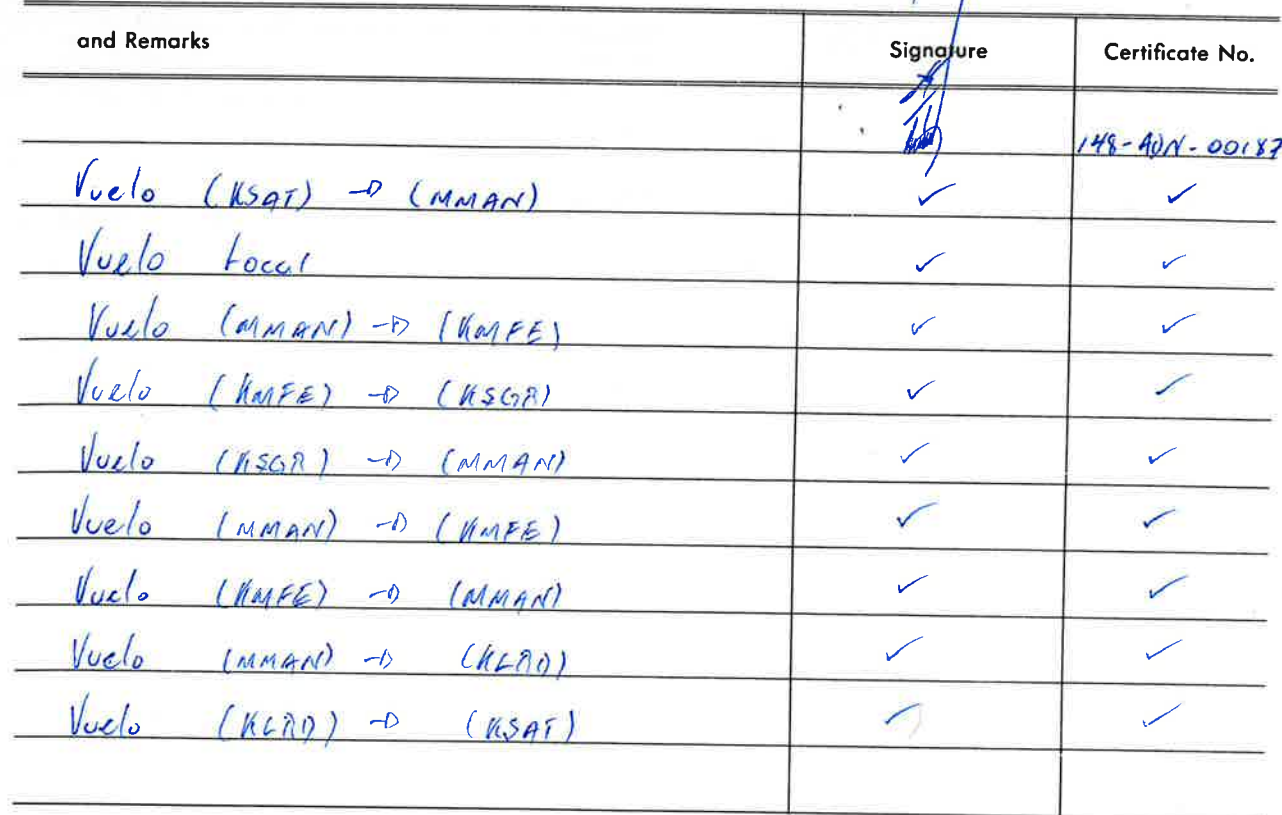 and Remarks Signature Certificate No.
148-ADN-00187
Vuelo (KSAT) → (MMAN) ✓ ✓
Vuelo Local ✓ ✓
Vuelo (MMAN) → (KMFE) ✓ ✓
Vuelo (KMFE) → (KSGR) ✓ ✓
Vuelo (KSGR) → (MMAN) ✓ ✓
Vuelo (MMAN) → (KMFE) ✓ ✓
Vuelo (KMFE) → (MMAN) ✓ ✓
Vuelo (MMAN) → (KLRD) ✓ ✓
Vuelo (KLRD) → (KSAT) ✓ ✓